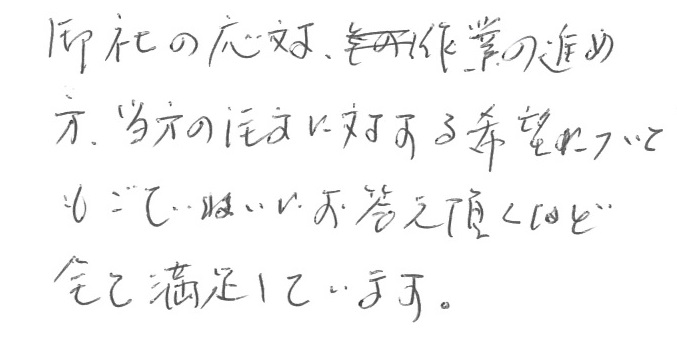 御社の応対、作業の進め
方、当方の注文に対する希望について
もごていねいにお答え頂くなど
全て満足しています。